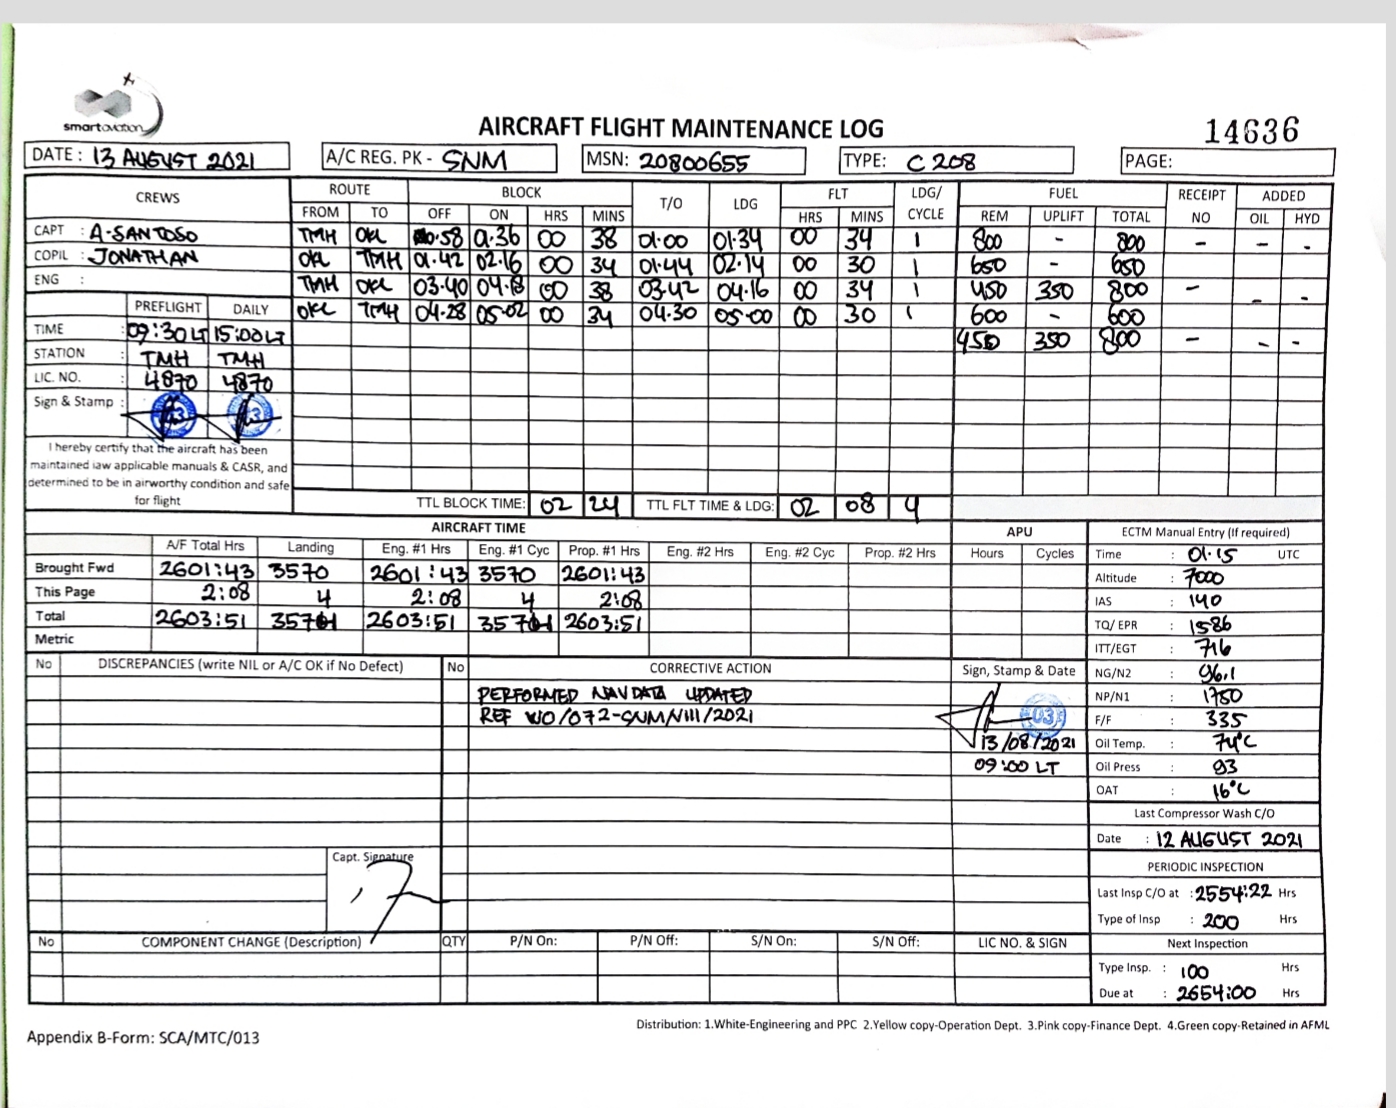 smartovation
AIRCRAFT FLIGHT MAINTENANCE LOG
14636
DATE : 13 AUGUST 2021 A/C REG. PK - SNM MSN: 20800655 TYPE: C 208 PAGE:
CREWS ROUTE BLOCK T/O LDG FLT LDG/ CYCLE FUEL RECEIPT NO ADDED
FROM TO OFF ON HRS MINS HRS MINS REM UPLIFT TOTAL OIL HYD
CAPT : A-SANTOSO TMH OKL 00.58 01.36 00 38 01.00 01.34 00 34 1 800 - 800 - - -
COPIL : JONATHAN OKL TMH 01.42 02.16 00 34 01.44 02.14 00 30 1 650 - 650
ENG : TMH OKL 03.40 04.18 00 38 03.42 04.16 00 34 1 450 350 800 - - -
PREFLIGHT DAILY OKL TMH 04.28 05.02 00 34 04.30 05.00 00 30 1 600 - 600
TIME : 09:30 LT 15:00 LT 450 350 800 - - -
STATION : TMH TMH
LIC. NO. : 4870 4870
Sign & Stamp :
I hereby certify that the aircraft has been
maintained iaw applicable manuals & CASR, and
determined to be in airworthy condition and safe
for flight
TTL BLOCK TIME: 02 24 TTL FLT TIME & LDG: 02 08 4
AIRCRAFT TIME APU ECTM Manual Entry (If required)
A/F Total Hrs Landing Eng. #1 Hrs Eng. #1 Cyc Prop. #1 Hrs Eng. #2 Hrs Eng. #2 Cyc Prop. #2 Hrs Hours Cycles
Brought Fwd 2601:43 3570 2601:43 3570 2601:43
This Page 2:08 4 2:08 4 2:08
Total 2603:51 2603:51 2603:51
Metric
Time : 01.15 UTC
Altitude : 7000
IAS : 140
TQ/ EPR : 1586
ITT/EGT : 716
NG/N2 : 96.1
NP/N1 : 1750
F/F : 335
Oil Temp. : 74°C
Oil Press : 93
OAT : 16°C
Last Compressor Wash C/O
Date : 12 AUGUST 2021
PERIODIC INSPECTION
Last Insp C/O at : 2554:22 Hrs
Type of Insp : 200 Hrs
Next Inspection
Type Insp. : 100 Hrs
Due at : 2654:00 Hrs
No DISCREPANCIES (write NIL or A/C OK if No Defect) No CORRECTIVE ACTION Sign, Stamp & Date
PERFORMED NAVDATA UPDATED
REF WO/072-SNM/VIII/2021
03
13/08/2021
09:00 LT
Capt. Signature
No COMPONENT CHANGE (Description) QTY P/N On: P/N Off: S/N On: S/N Off: LIC NO. & SIGN
Distribution: 1.White-Engineering and PPC 2.Yellow copy-Operation Dept. 3.Pink copy-Finance Dept. 4.Green copy-Retained in AFML
Appendix B-Form: SCA/MTC/013